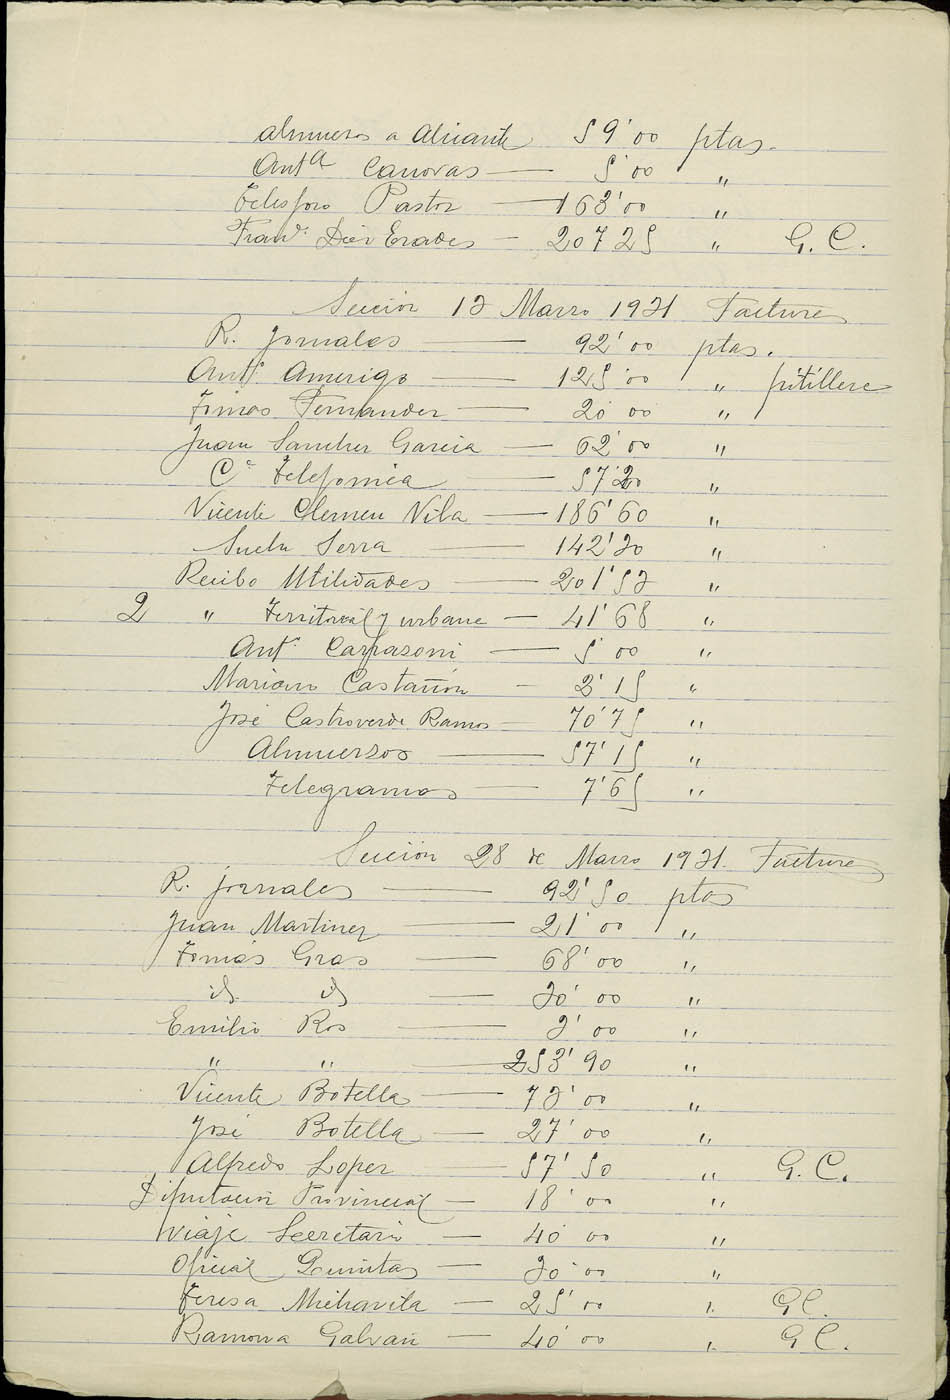 almuerzos a Alicante 59'00 ptas.
Antª Canovas — 5'00 "
Telesforo Pastor — 163'00 "
Franº. Diez Erades — 207 25 " G. C.
Sección 13 Marzo 1931 Facturas
R. jornales — 92'00 ptas.
Antº. Amerigo — 125'00 " pitillera
Tomás Fernandez — 20 00 "
Juan Sanchez Garcia — 62'00 "
Cª Telefonica — 57'20 "
Vicente Clemen Vila — 186'60 "
Serra — 142'30 "
Recibo Utilidades — 201'53 "
2 " Territorial y urbana — 41'68 "
Antº Carrasoni — 5 00 "
Mariano Castañón — 2'15 "
José Castroverde Ramos — 70'75 "
Almuerzos — 57'15 "
Telegramas — 7'65 "
Sección 28 de Marzo 1931. Facturas
R. jornales — 92'50 ptas
Juan Martinez — 21'00 "
Tomás Gras — 68'00 "
id. id — 30'00 "
Emilio Ros — 3'00 "
" " — 253'90 "
Vicente Botella — 73'00 "
José Botella — 27'00 "
Alfredo Lopez — 57'50 " G. C.
Diputación Provincial — 18'00 "
Viaje Secretario — 40 00 "
Oficial Quintas — 30'00 "
Teresa Michavila — 25'00 " G C.
Ramona Galvañ — 40'00 " G C.